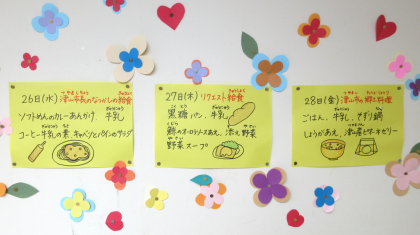 26日(水) 津山市長のなつかしの給食
ソフトめんのカレーあんかけ、牛乳
コーヒー牛乳の素、キャベツとパインのサラダ
27日(木) リクエスト給食
黒糖パン、牛乳
鯨のオーロラソースあえ、添え野菜
野菜スープ
28日(金) 津山市の郷土料理
ごはん、牛乳、そずり鍋
しょうがあえ、
ゼリー